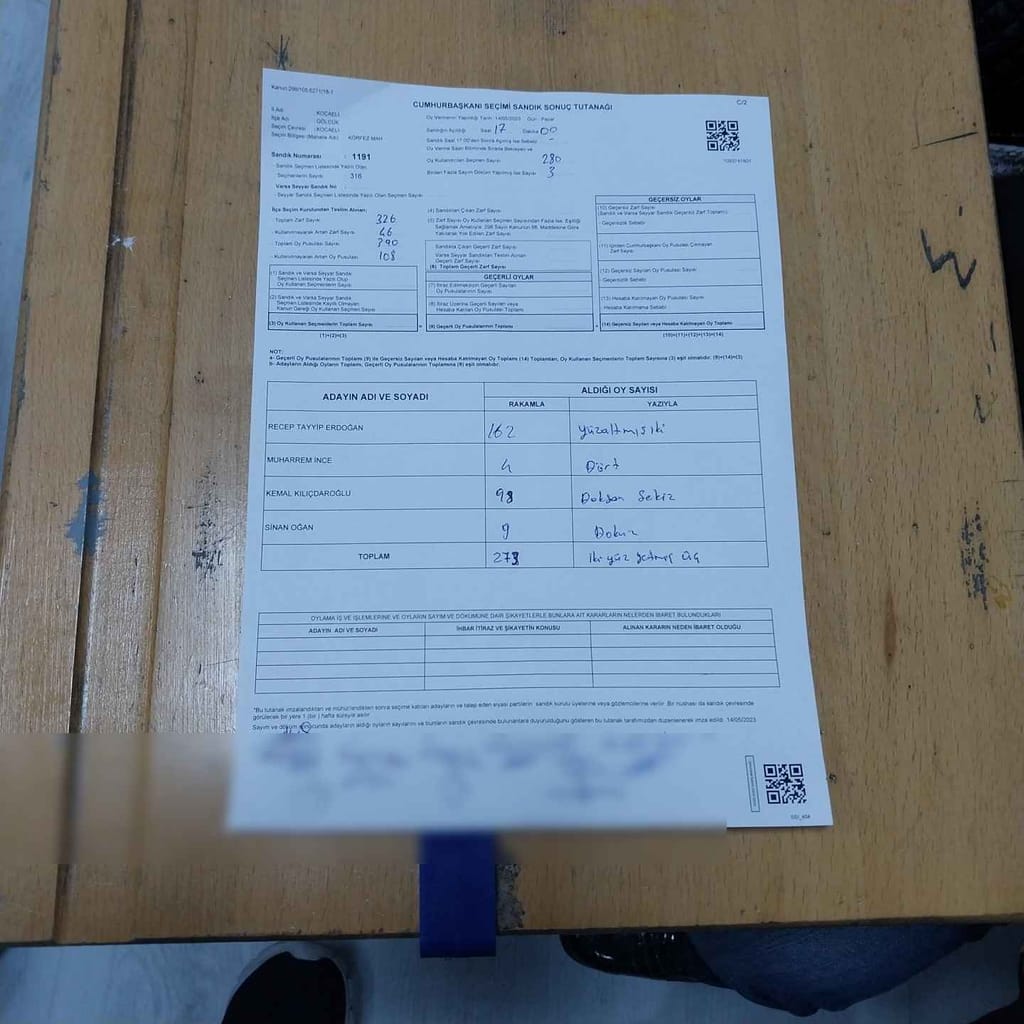 Kanun:298/105,6271/18-1
CUMHURBAŞKANI SEÇİMİ SANDIK SONUÇ TUTANAĞI
C/2
İl Adı : KOCAELİ
İlçe Adı : GÖLCÜK
Seçim Çevresi : KOCAELİ
Seçim Bölgesi (Mahalle Adı) : KÖRFEZ MAH
Sandık Numarası : 1191
Sandık Seçmen Listesinde Yazılı Olan
Seçmenlerin Sayısı : 316
Varsa Seyyar Sandık No
Seyyar Sandık Seçmen Listesinde Yazılı Olan Seçmen Sayısı
Oy Vermenin Yapıldığı Tarih: 14/05/2023 Gün : Pazar
Sandığın Açıldığı Saat 17 Dakika 00
Sandık Saat 17.00'den Sonra Açılmış İse Sebebi -
Oy Verme Saati Bitiminde Sırada Bekleyen ve
Oy Kullandırılan Seçmen Sayısı 280
Birden Fazla Sayım Döküm Yapılmış İse Sayısı 3
İlçe Seçim Kurulundan Teslim Alınan;
- Toplam Zarf Sayısı 326
- Kullanılmayarak Artan Zarf Sayısı 46
- Toplam Oy Pusulası Sayısı 390
- Kullanılmayarak Artan Oy Pusulası 108
(1) Sandık ve Varsa Seyyar Sandık
Seçmen Listesinde Yazılı Olup
Oy Kullanan Seçmenlerin Sayısı
(2) Sandık ve Varsa Seyyar Sandık
Seçmen Listesinde Kayıtlı Olmayan
Kanun Gereği Oy Kullanan Seçmen Sayısı
(3) Oy Kullanan Seçmenlerin Toplam Sayısı
(1)+(2)=(3)
(4) Sandıktan Çıkan Zarf Sayısı
(5) Zarf Sayısı Oy Kullanan Seçmen Sayısından Fazla ise, Eşitliği
Sağlamak Amacıyla; 298 Sayılı Kanunun 98. Maddesine Göre
Yakılarak Yok Edilen Zarf Sayısı
Sandıkta Çıkan Geçerli Zarf Sayısı
Varsa Seyyar Sandıktan Teslim Alınan
Geçerli Zarf Sayısı
(6) Toplam Geçerli Zarf Sayısı
GEÇERLİ OYLAR
(7) İtiraz Edilmeksizin Geçerli Sayılan
Oy Pusulalarının Sayısı
(8) İtiraz Üzerine Geçerli Sayılan veya
Hesaba Katılan Oy Pusulası Toplamı
(9) Geçerli Oy Pusulalarının Toplamı
GEÇERSİZ OYLAR
(10) Geçersiz Zarf Sayısı
(Sandık ve Varsa Seyyar Sandık Geçersiz Zarf Toplamı)
- Geçersizlik Sebebi
(11) İçinden Cumhurbaşkanı Oy Pusulası Çıkmayan
Zarf Sayısı
(12) Geçersiz Sayılan Oy Pusulası Sayısı
- Geçersizlik Sebebi
(13) Hesaba Katılmayan Oy Pusulası Sayısı
- Hesaba Katılmama Sebebi
(14) Geçersiz Sayılan veya Hesaba Katılmayan Oy Toplamı
(10)+(11)+(12)+(13)=(14)
NOT:
a- Geçerli Oy Pusulalarının Toplamı (9) ile Geçersiz Sayılan veya Hesaba Katılmayan Oy Toplamı (14) Toplamları, Oy Kullanan Seçmenlerin Toplam Sayısına (3) eşit olmalıdır. (9)+(14)=(3)
b- Adayların Aldığı Oyların Toplamı, Geçerli Oy Pusulalarının Toplamına (9) eşit olmalıdır.
ADAYIN ADI VE SOYADI ALDIĞI OY SAYISI
RAKAMLA YAZIYLA
RECEP TAYYİP ERDOĞAN 162 yüzaltmışiki
MUHARREM İNCE 4 Dört
KEMAL KILIÇDAROĞLU 98 Doksan Sekiz
SİNAN OĞAN 9 Dokuz
TOPLAM 273 iki yüz yetmiş üç
OYLAMA İŞ VE İŞLEMLERİNE VE OYLARIN SAYIM VE DÖKÜMÜNE DAİR ŞİKAYETLERLE BUNLARA AİT KARARLARIN NELERDEN İBARET BULUNDUKLARI
ADAYIN ADI VE SOYADI İHBAR İTİRAZ VE ŞİKAYETİN KONUSU ALINAN KARARIN NEDEN İBARET OLDUĞU
*Bu tutanak imzalandıktan ve mühürlendikten sonra seçime katılan adayların ve talep eden siyasi partilerin sandık kurulu üyelerine veya gözlemcilerine verilir. Bir nüshası da sandık çevresinde
görülecek bir yere 1 (bir ) hafta süreyle asılır
Sayım ve döküm sonucunda adayların aldığı oyların sayılarını ve bunların sandık çevresinde bulunanlara duyurulduğunu gösteren bu tutanak tarafımızdan düzenlenerek imza edildi. 14/05/2023